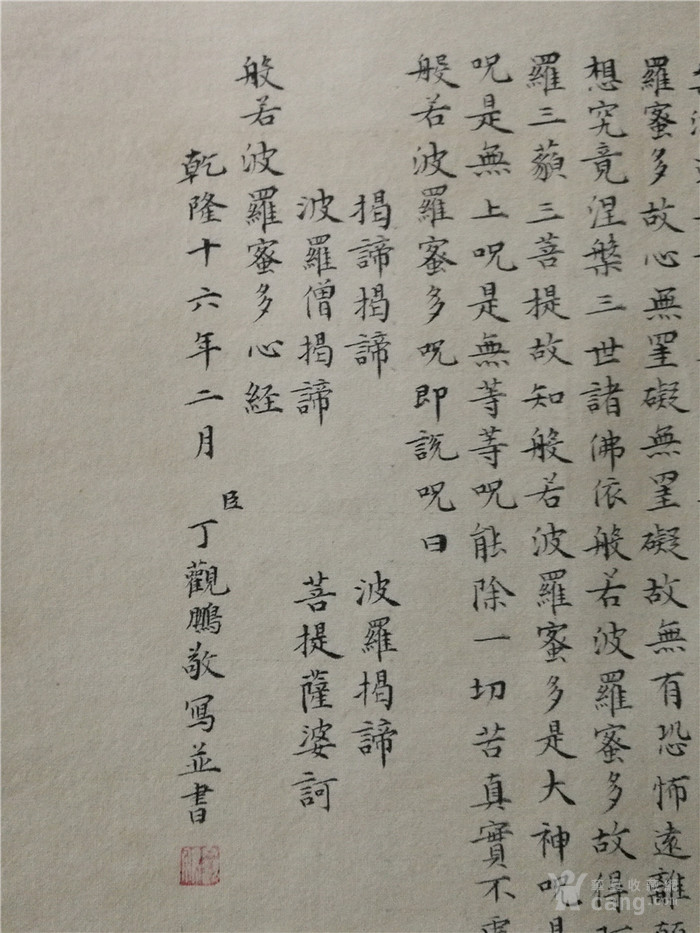 羅蜜多故心無罣礙無罣礙故無有恐怖遠離
想究竟涅槃三世諸佛依般若波羅蜜多故得
羅三藐三菩提故知般若波羅蜜多是大神呪是
呪是無上呪是無等等呪能除一切苦真實不
般若波羅蜜多呪即說呪曰
揭諦揭諦 波羅揭諦
波羅僧揭諦 菩提薩婆訶
般若波羅蜜多心経
乾隆十六年二月 臣丁觀鵬敬寫並書
華夏收藏網
cang.com